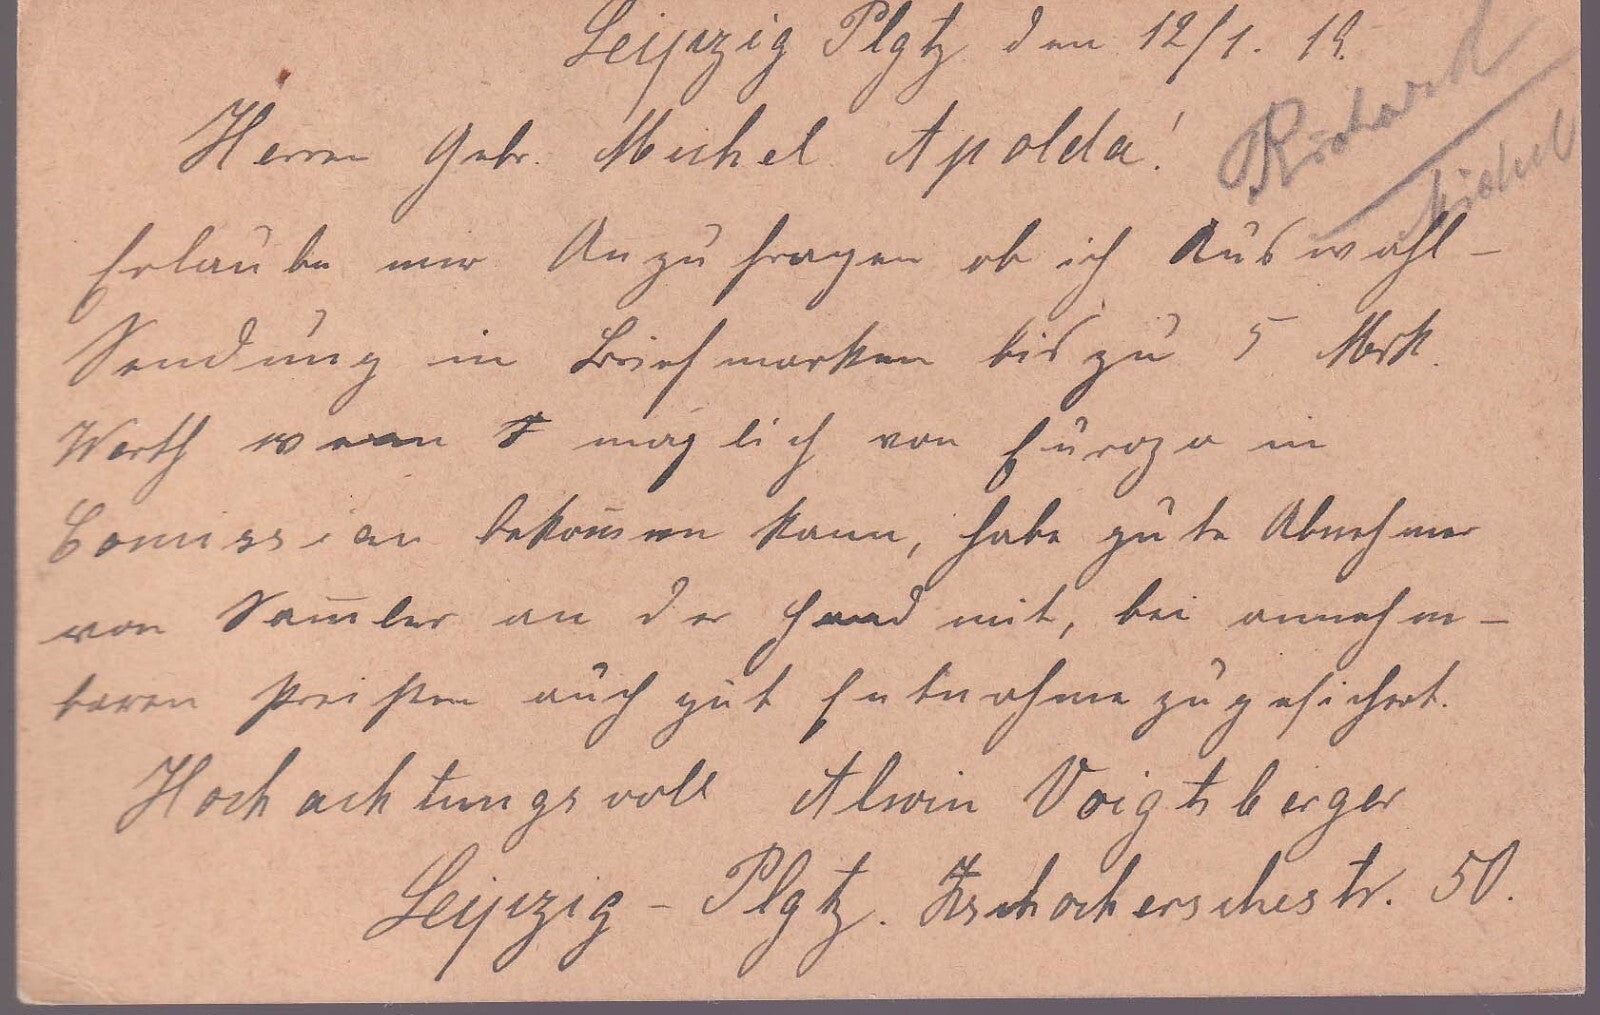 Leipzig Plgtz den 12/1. 19.
Richard
Michel
Herrn Gebr. Michel Apolda!
Erlaube mir Anzufragen ob ich Auswahl-
Sendung in Briefmarken bis zu 5 Mark.
Werth wenn möglich von Europa in
Comission bekom̅en kann, habe gute Abnehmer
von Sam̅ler an der Hand mit, bei annehm-
baren Preisen auch gut Entnahme zugesichert.
Hochachtungsvoll Alwin Voigtsberger
Leipzig - Plgtz. Zschocherschestr. 50.